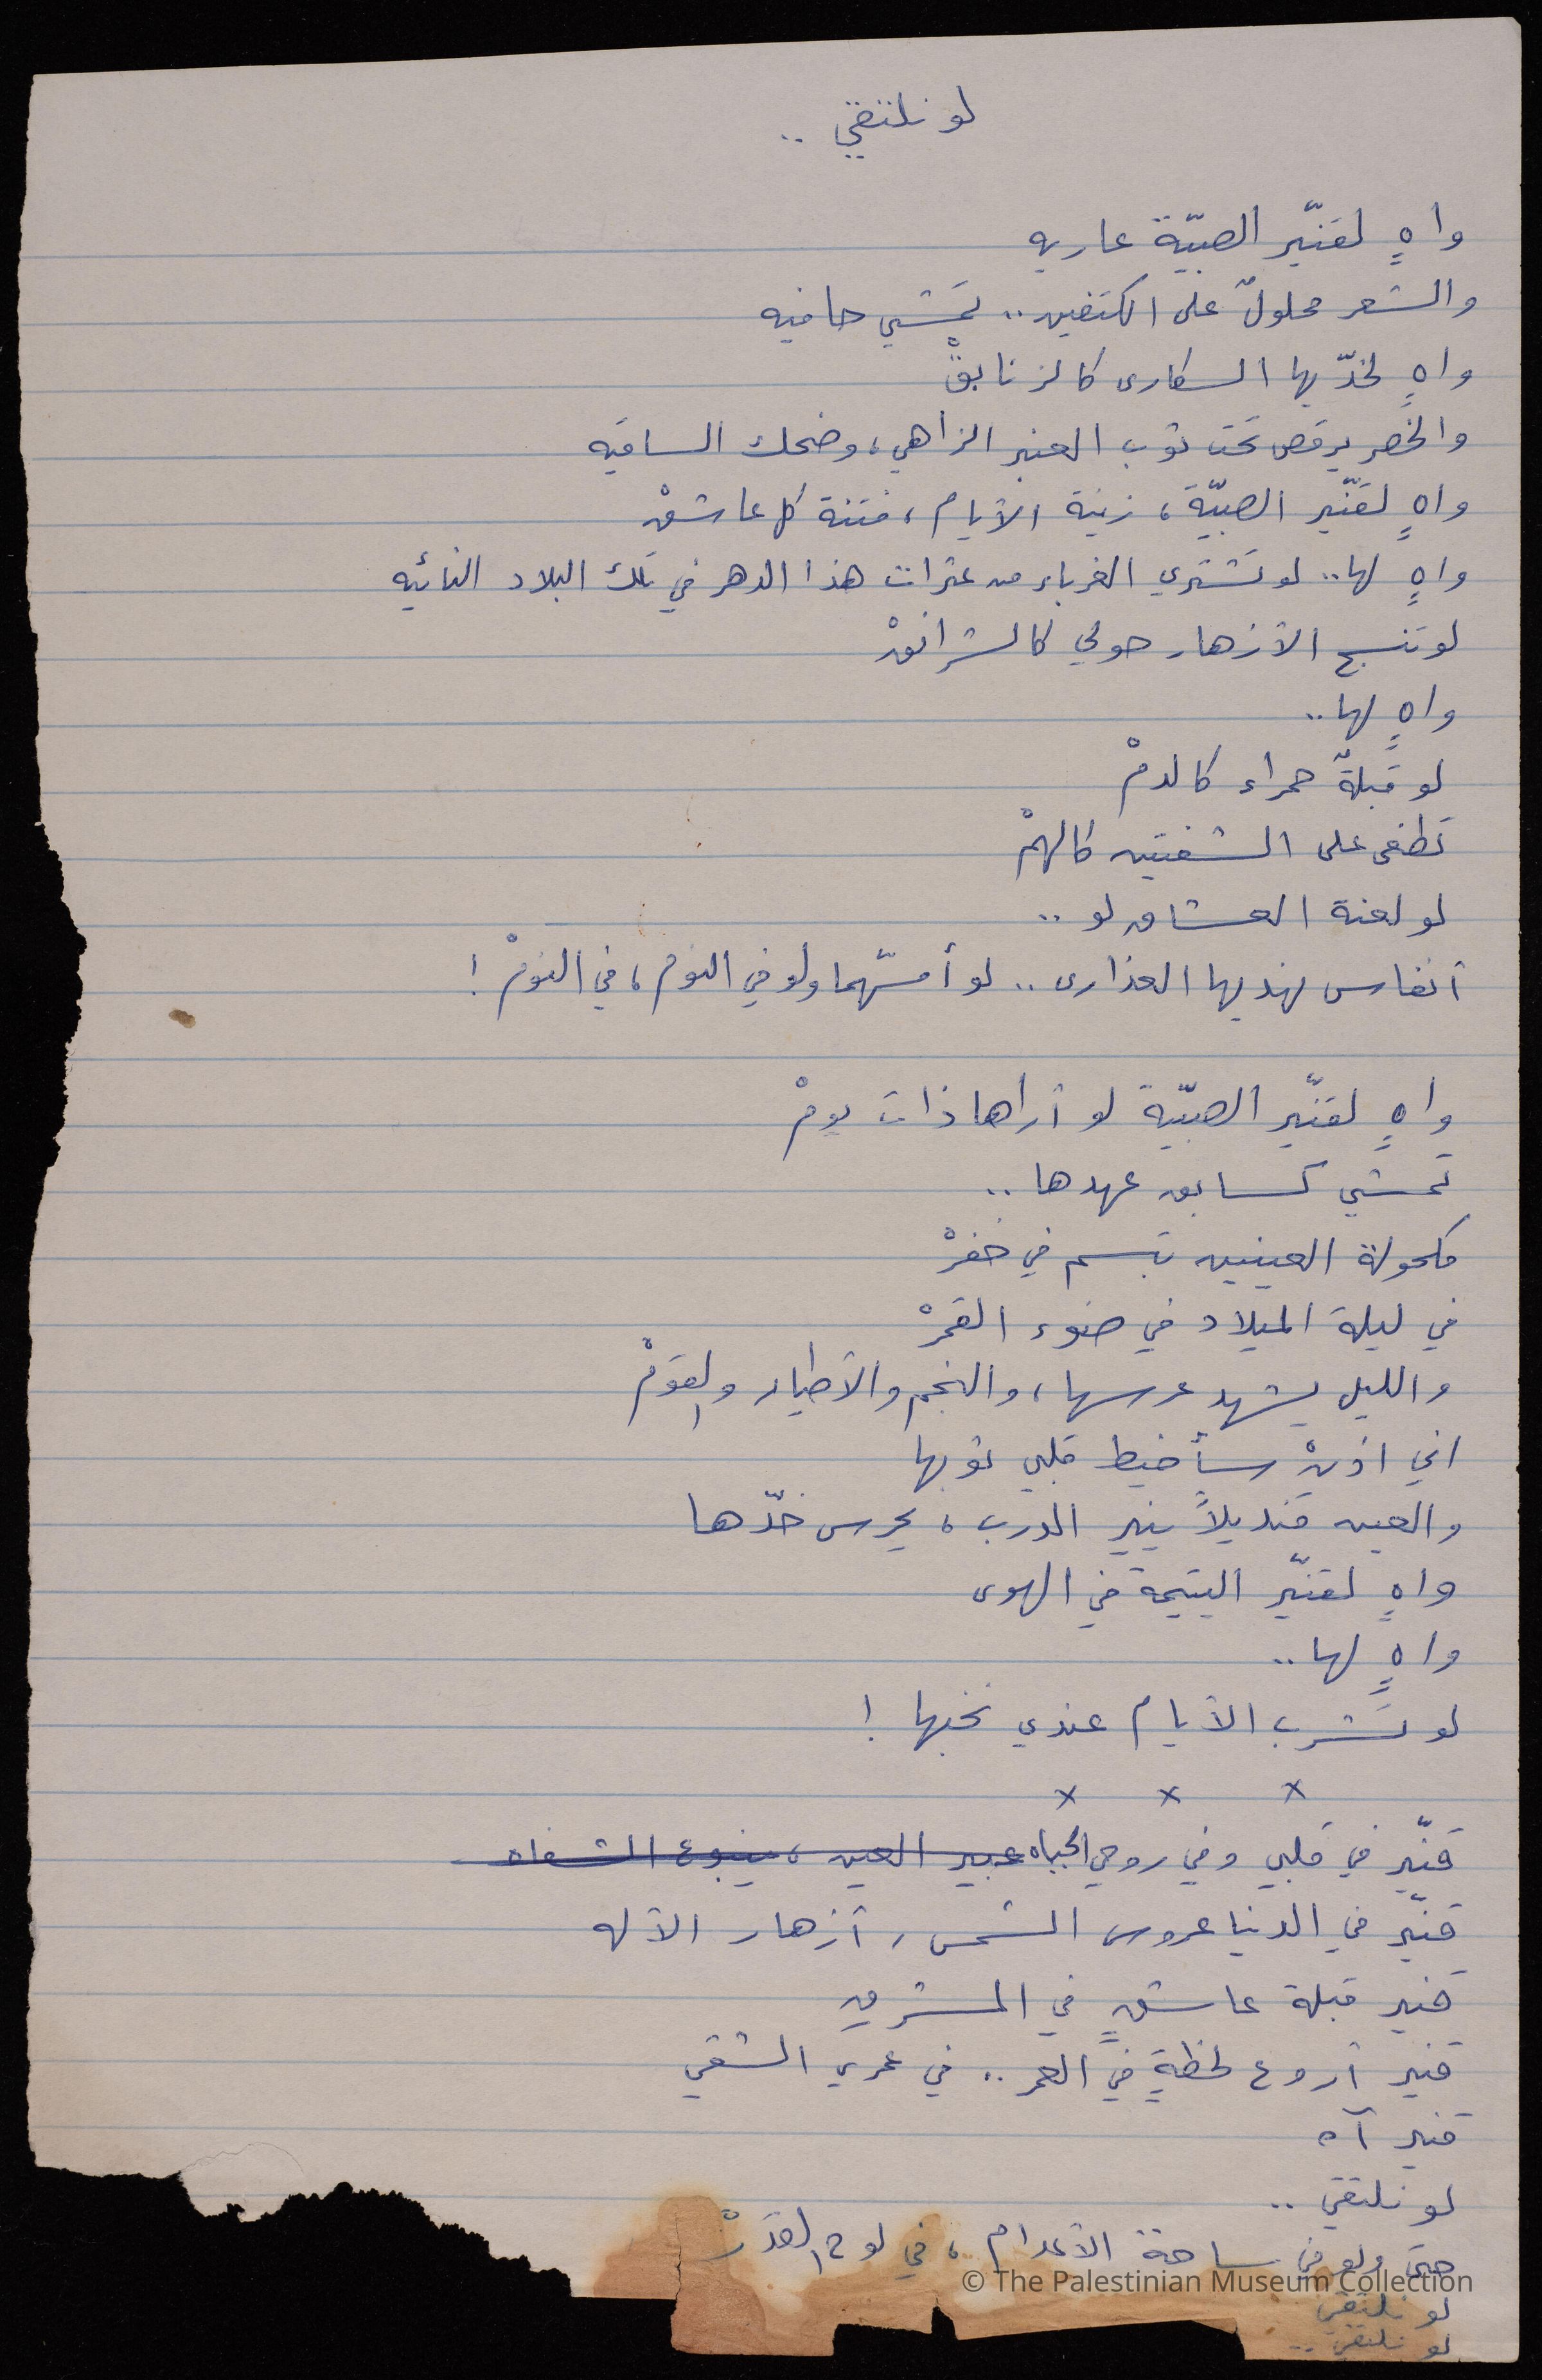 لو نلتقي ..
واهٍ لقنّير الصبيّة عاريه
والشعر محلولٌ على الكتفين .. تمَشي حافيه
واهٍ لخدّيها السكارى كالزنابقْ
والخصر يرقص تحت ثوب العنبر الزاهي، وضحك الساقيه
واهٍ لقنّير الصبيّة، زينة الأيام، فتنة كل عاشقْ
واهٍ لها .. لو تشتري الغرباء من عثرات هذا الدهر في تلك البلاد النائيه
لو تنسج الأزهار حولي كالشرانقْ
واهٍ لها ..
لو قبلةٌ حمراء كالدمْ
تطغى على الشفتين كالهمْ
لو لعنة العشاق لو ..
أنفاس نهديها العذارى .. لو أمسّهما ولو في النوم، في النومْ !
واهٍ لقنّير الصبيّة لو أراها ذات يومْ
تمشي كسابق عهدها ..
مكحولة العينين تبسم في خفرْ
في ليلة الميلاد في ضوء القمرْ
والليل يشهد عرسها، والنجم والأطيار والقومْ
اني اذنْ سأخيط قلبي ثوبها
والعين قنديلاً ينير الدرب، يحرس خدّها
واهٍ لقنّير اليتيمة في الهوى
واهٍ لها ..
لو تشرب الأيام عندي نخبها !
× × ×
قنّير في قلبي وفي روحي الحياه عبير العين، ينبوع الشفاه
قنيّر في الدنيا عروس الشمس، أزهار الأله
قنير قبلة عاشقٍ في المشرقِ
قنير أروع لحظةٍ في العمر .. في عمري الشقي
قنير آه
لو نلتقي ..
حتى ولو في ساحة الأعدام، في لوح القدَرْ
© The Palestinian Museum Collection
لو نلتقي
لو نلتقي ..